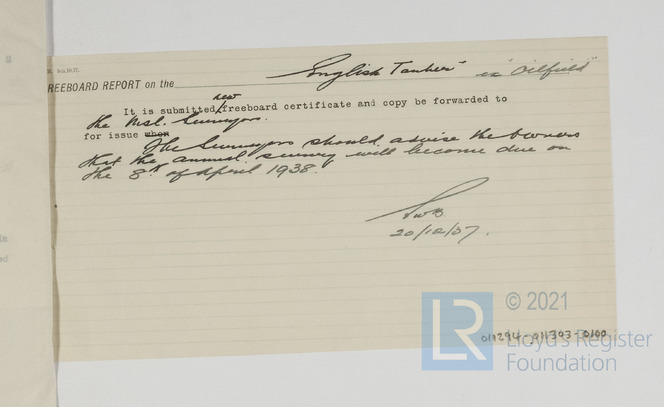 REEBOARD REPORT on the "English Tanker" ex "Oilfield"
new
It is submitted freeboard certificate and copy be forwarded to
the Msl. Surveyors.
for issue when
The Surveyors should advise the Owners
that the annual survey will become due on
the 8th of April 1938.
20/12/37.
© 2021
LR
Lloyd's Register
Foundation
011294-011303-0100